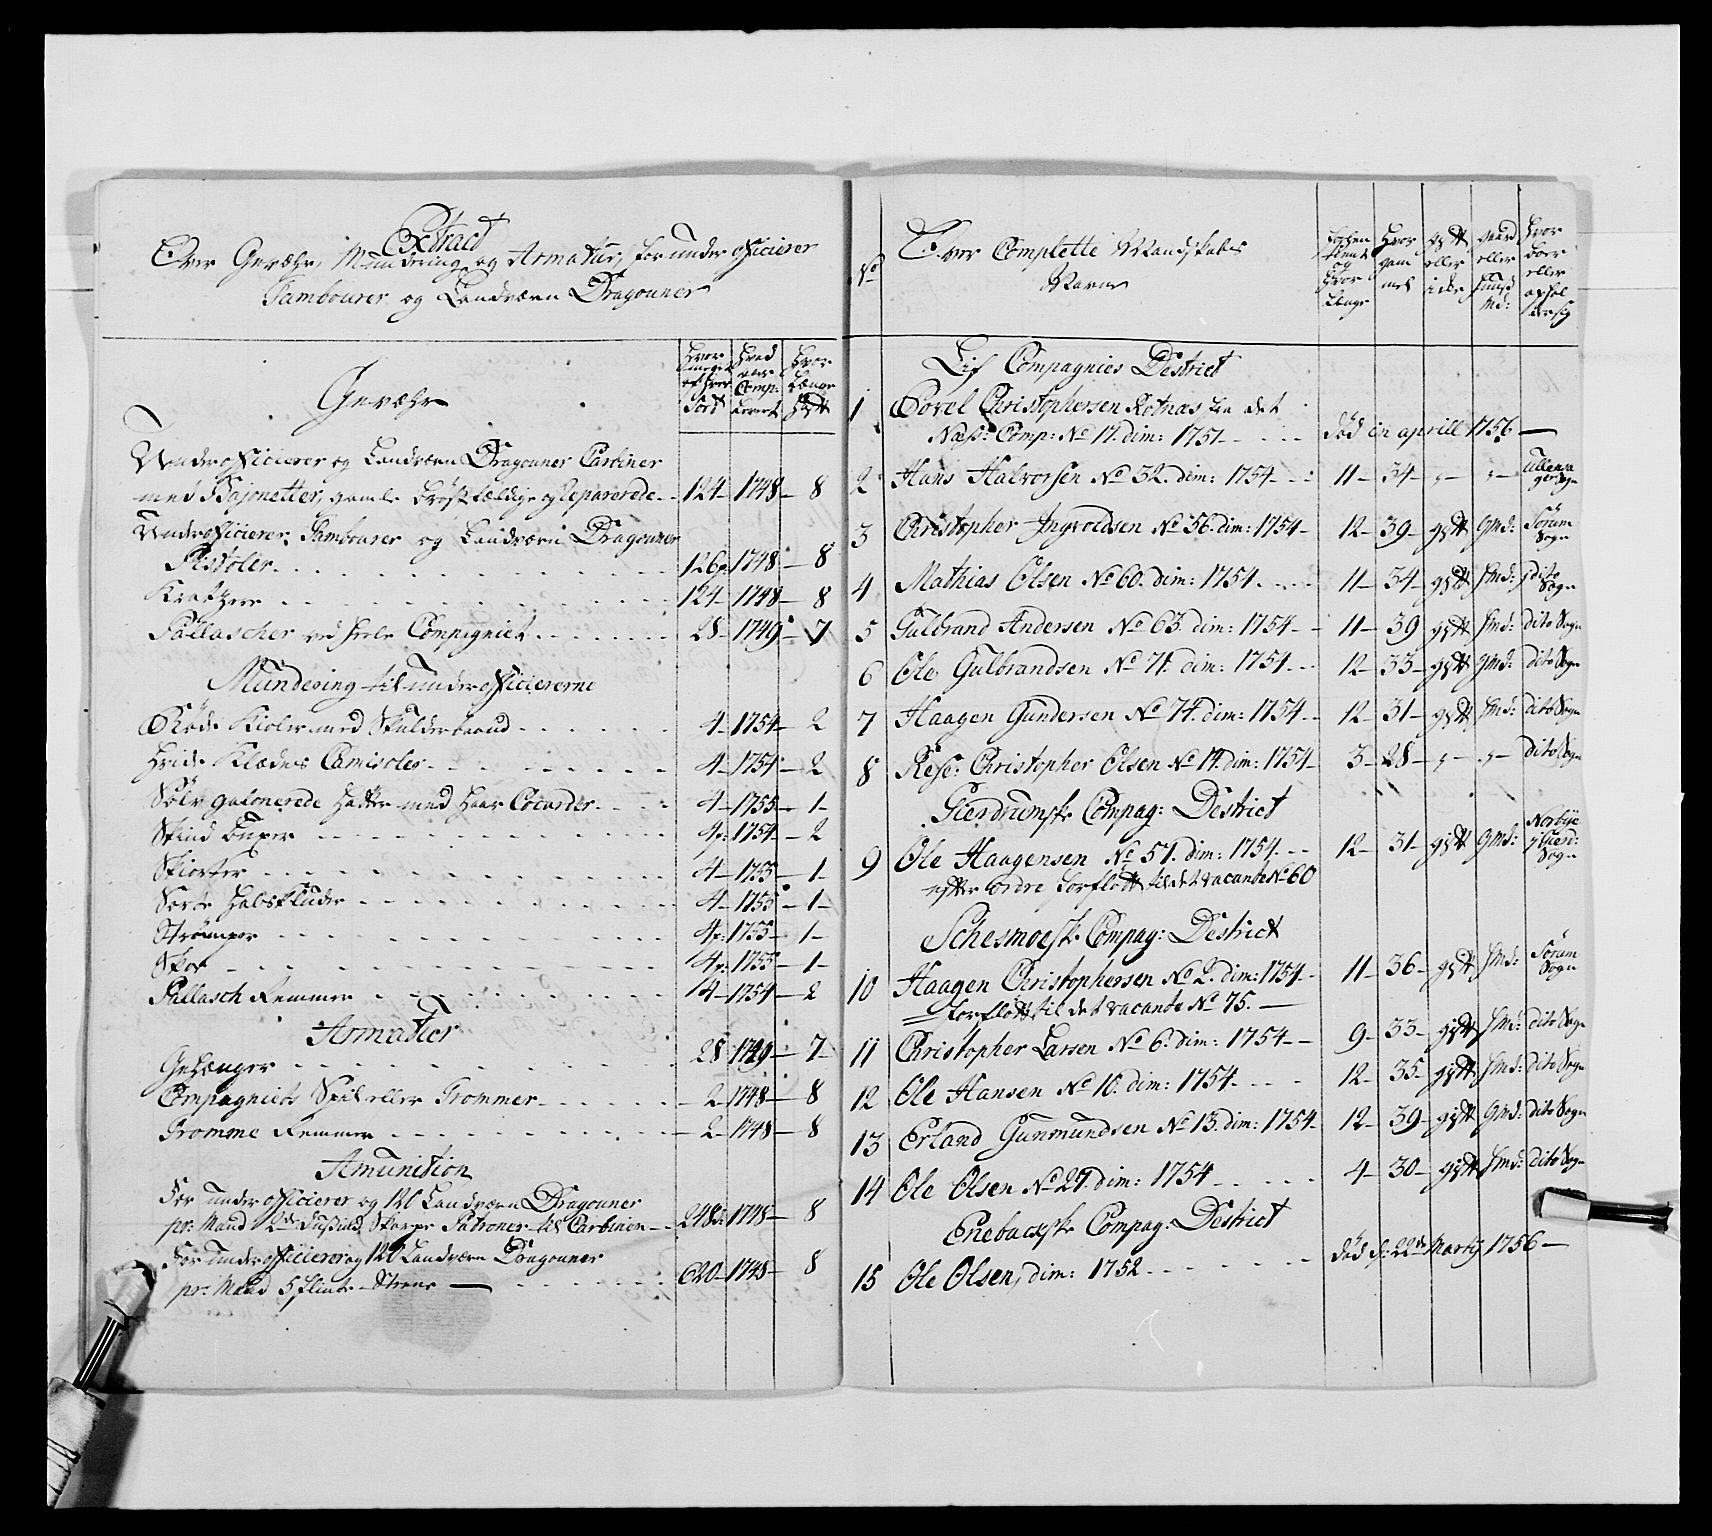 Extract
Over Gevæhr, Mundering og Armatur, for under officierer
Tambourer og Landværn Dragouner
Hvor meget af hver Sort
Hvad aar Comp: levert
Hvor længe gydt
Gevæhr
Underofficierer og Landværn Dragouner Carbiner
med Bajonetter, gamle brøstfældige og Reparerede 124 1748 8
Underofficierer, Tambourer og Landværn Dragouner
Pistoler 126p: 1748 8
Kratzere 124 1748 8
Pallascher ved heele Compagniet 28 1749 7
Mundering til underofficiererne
Røde Kioler med Skulderbaand 4 1754 2
Hvide Klædes Camisoler 4 1754 2
Sølv galonerede hatte med haar Cocarder 4 1755 1
Skind buxer 4p: 1754 2
Skiorter 4 1755 1
Sorte halsklude 4 1755 1
Strømper 4p: 1755 1
Skoe 4p: 1755 1
Pallasch Remmer 4 1754 2
Armatur
Gehænger 28 1749 7
Compagniets Spil eller Trommer 2 1748 8
Tromme Remmer 2 1748 8
Amunition
For underofficierer og 120 Landværn Dragouner
pr: Mand 2de dusind Skarpe Patroner til Carbinen 248d: 1748 8
For underofficierer og 120 Landværn Dragouner
pr: Mand 5 flinte Steene 620 1748 8
No
Over Complette Mandskabs
Navne
Hvor gammel
gydt eller icke
gaard eller huusmd:
Hvor boer eller opholder sig
Lif Compagnies District
1 Povel Christophersen Rotnas fra det
Næss: Comp: No 17. dim: 1751 død in aprill 1756
2 Hans Halvorsen No 32. dim: 1754 11 34 " " Ullensager Sogn
3 Christopher Ingvoldsen No 56. dim: 1754 12 39 gydt gmd: Sørum Sogn
4 Mathias Olsen No 60. dim: 1754 11 34 gydt hmd: dito Sogn
5 Gulbrand Andersen No 63. dim: 1754 11 39 gydt hmd: dito Sogn
6 Ole Gulbrandsen No 71. dim: 1754 12 33 gydt gmd: dito Sogn
7 Haagen Gundersen No 74. dim: 1754 12 31 gydt hmd: dito Sogn
8 Rese: Christopher Olsen No 14. dim: 1754 3 28 " " dito Sogn
Gierdrumske Compag: District
9 Ole Haagensen No 51. dim: 1754 12 31 gydt gmd: Norbye i Gierd: Sogn
efter ordre forflødt til det vacante No 60
Schesmoeske Compag: District
10 Haagen Christophersen No 2. dim: 1754 11 36 gydt hmd: Sørum Sogn
forflødt til det vacante No 75.
11 Christopher Larsen No 6. dim: 1754 9 33 gydt hmd: dito Sogn
12 Ole Hansen No 10. dim: 1754 12 35 gydt hmd: dito Sogn
13 Erland Gunmundsen No 13. dim: 1754 12 39 gydt gmd: dito Sogn
14 Ole Olsen No 27. dim: 1754 4 30 gydt hmd: dito Sogn
Enebackske Compag: District
15 Ole Olsen, dim: 1752 død d: 22de Martij 1756